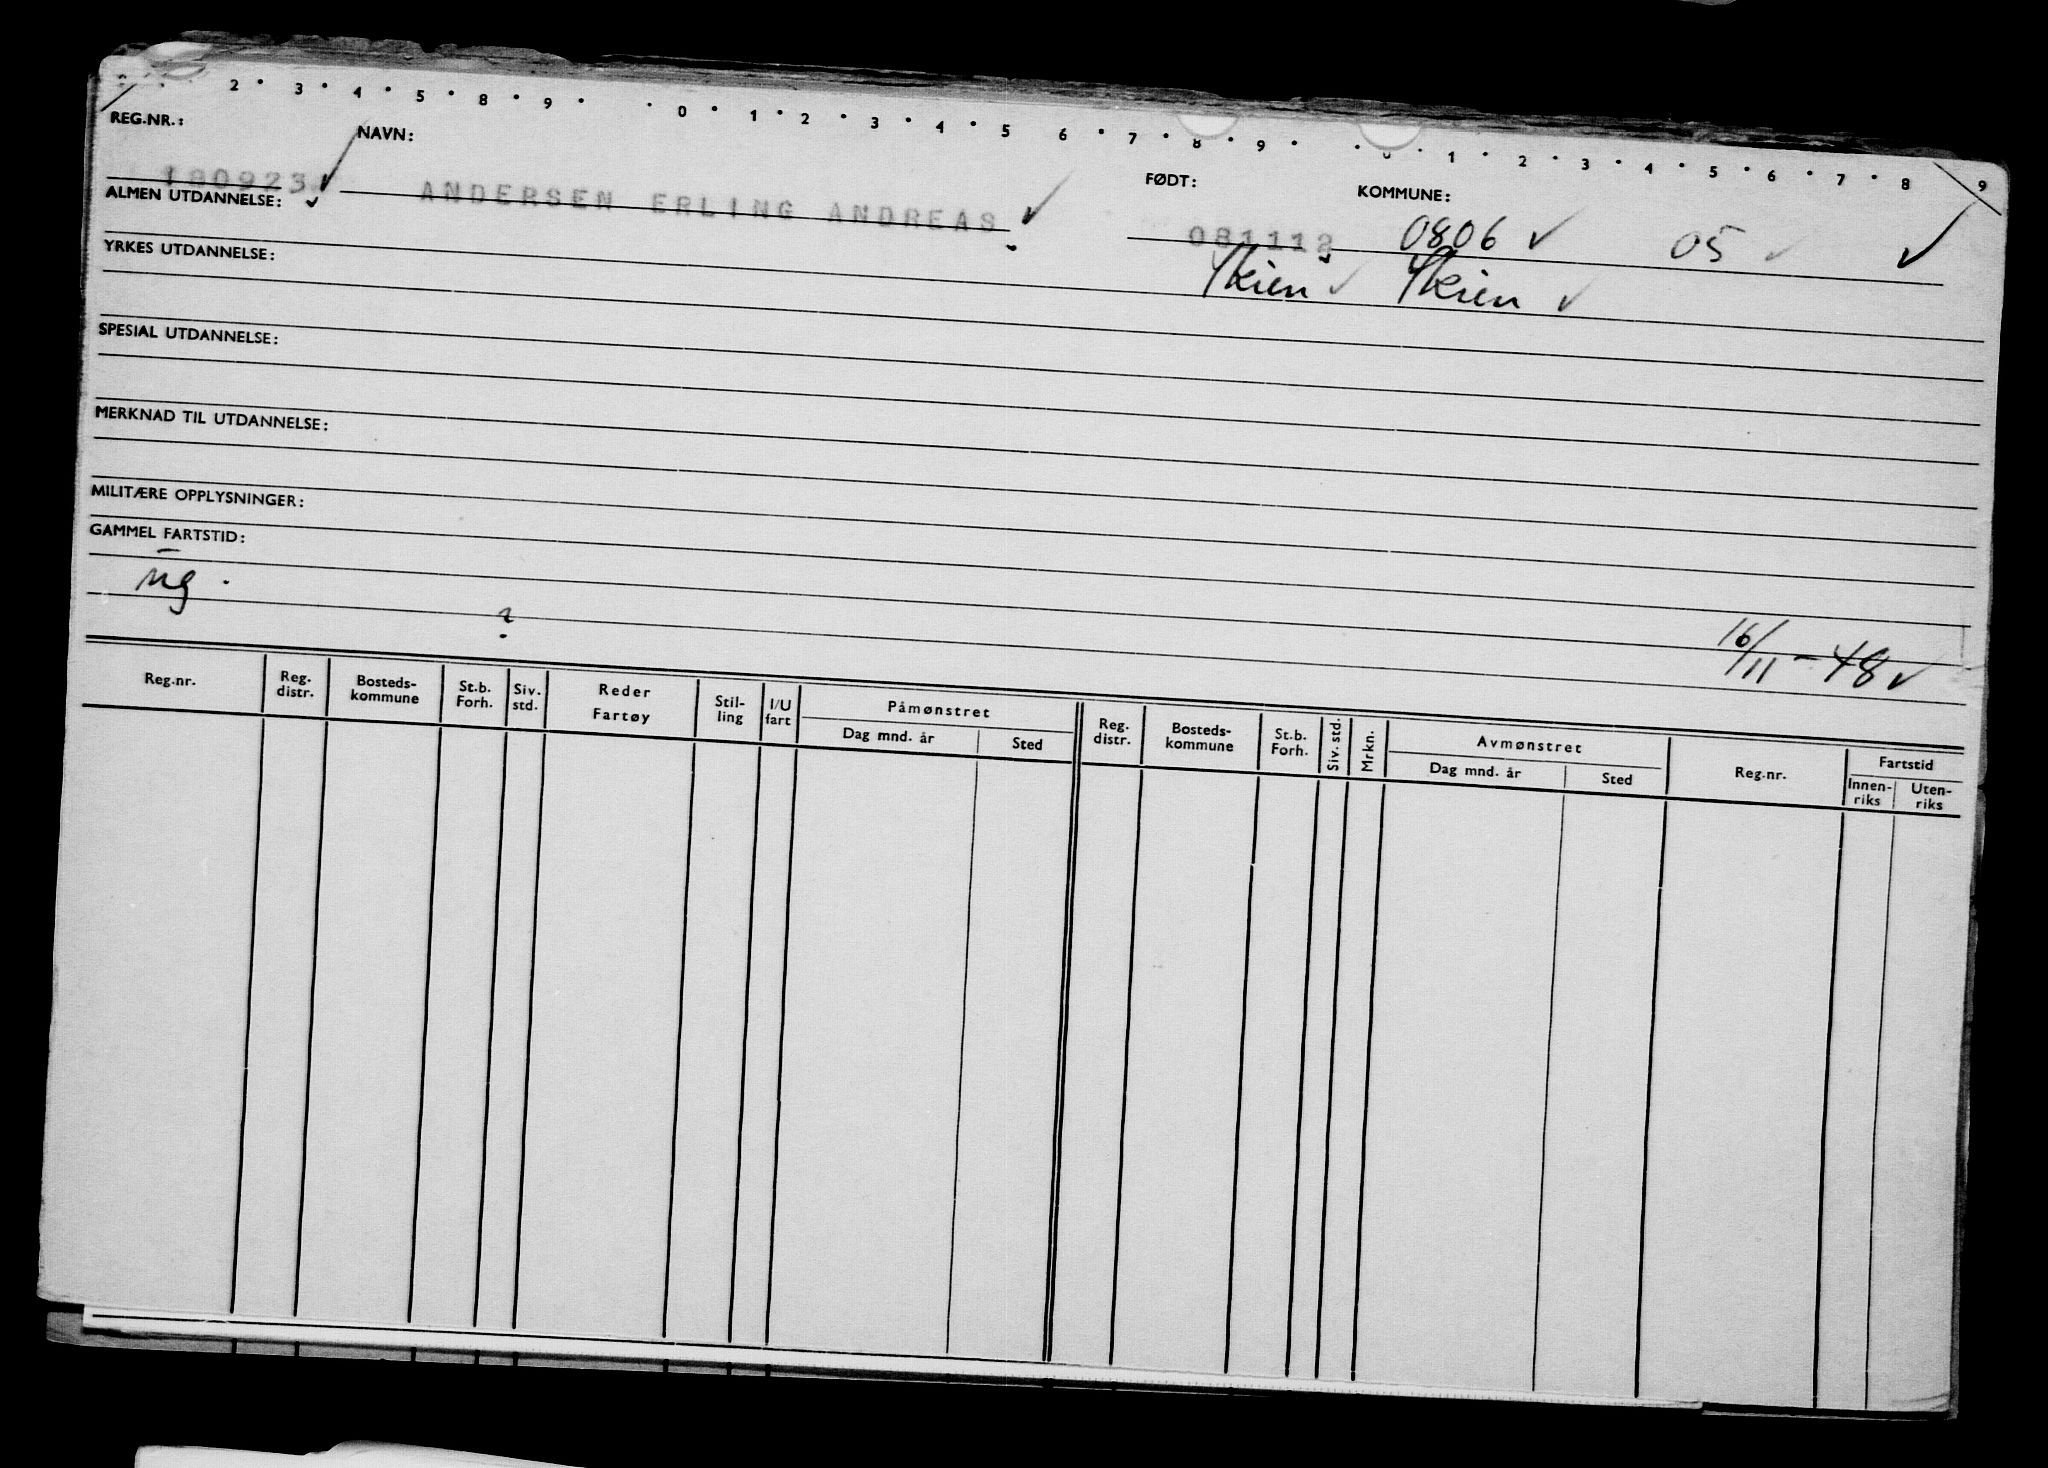 2 • 3 • 4 • 5 • 8 • 9 • • 0 • 1 • 2 • 3 • 4 • 5 6 • 7 • 8 • 9 • • 0 • 1 • 2 • 3 • 4 • 5 • 6 • 7 • 8 9
REG.NR.: NAVN: FØDT: KOMMUNE:
180923 ANDERSEN ERLING ANDREAS 081112 0806 05
ALMEN UTDANNELSE: Skien Skien
YRKES UTDANNELSE:
SPESIAL UTDANNELSE:
MERKNAD TIL UTDANNELSE:
MILITÆRE OPPLYSNINGER:
GAMMEL FARTSTID:
ug.
?
16/11-48
Reg.nr. Reg. distr. Bosteds-kommune St.b. Forh. Siv. std. Reder Fartøy Stil-ling I/U fart Påmønstret Dag mnd. år Sted Reg. distr. Bosteds-kommune St.b. Forh. Siv. std. Mrkn. Avmønstret Dag mnd. år Sted Reg.nr. Fartstid Innen-riks Uten-riks